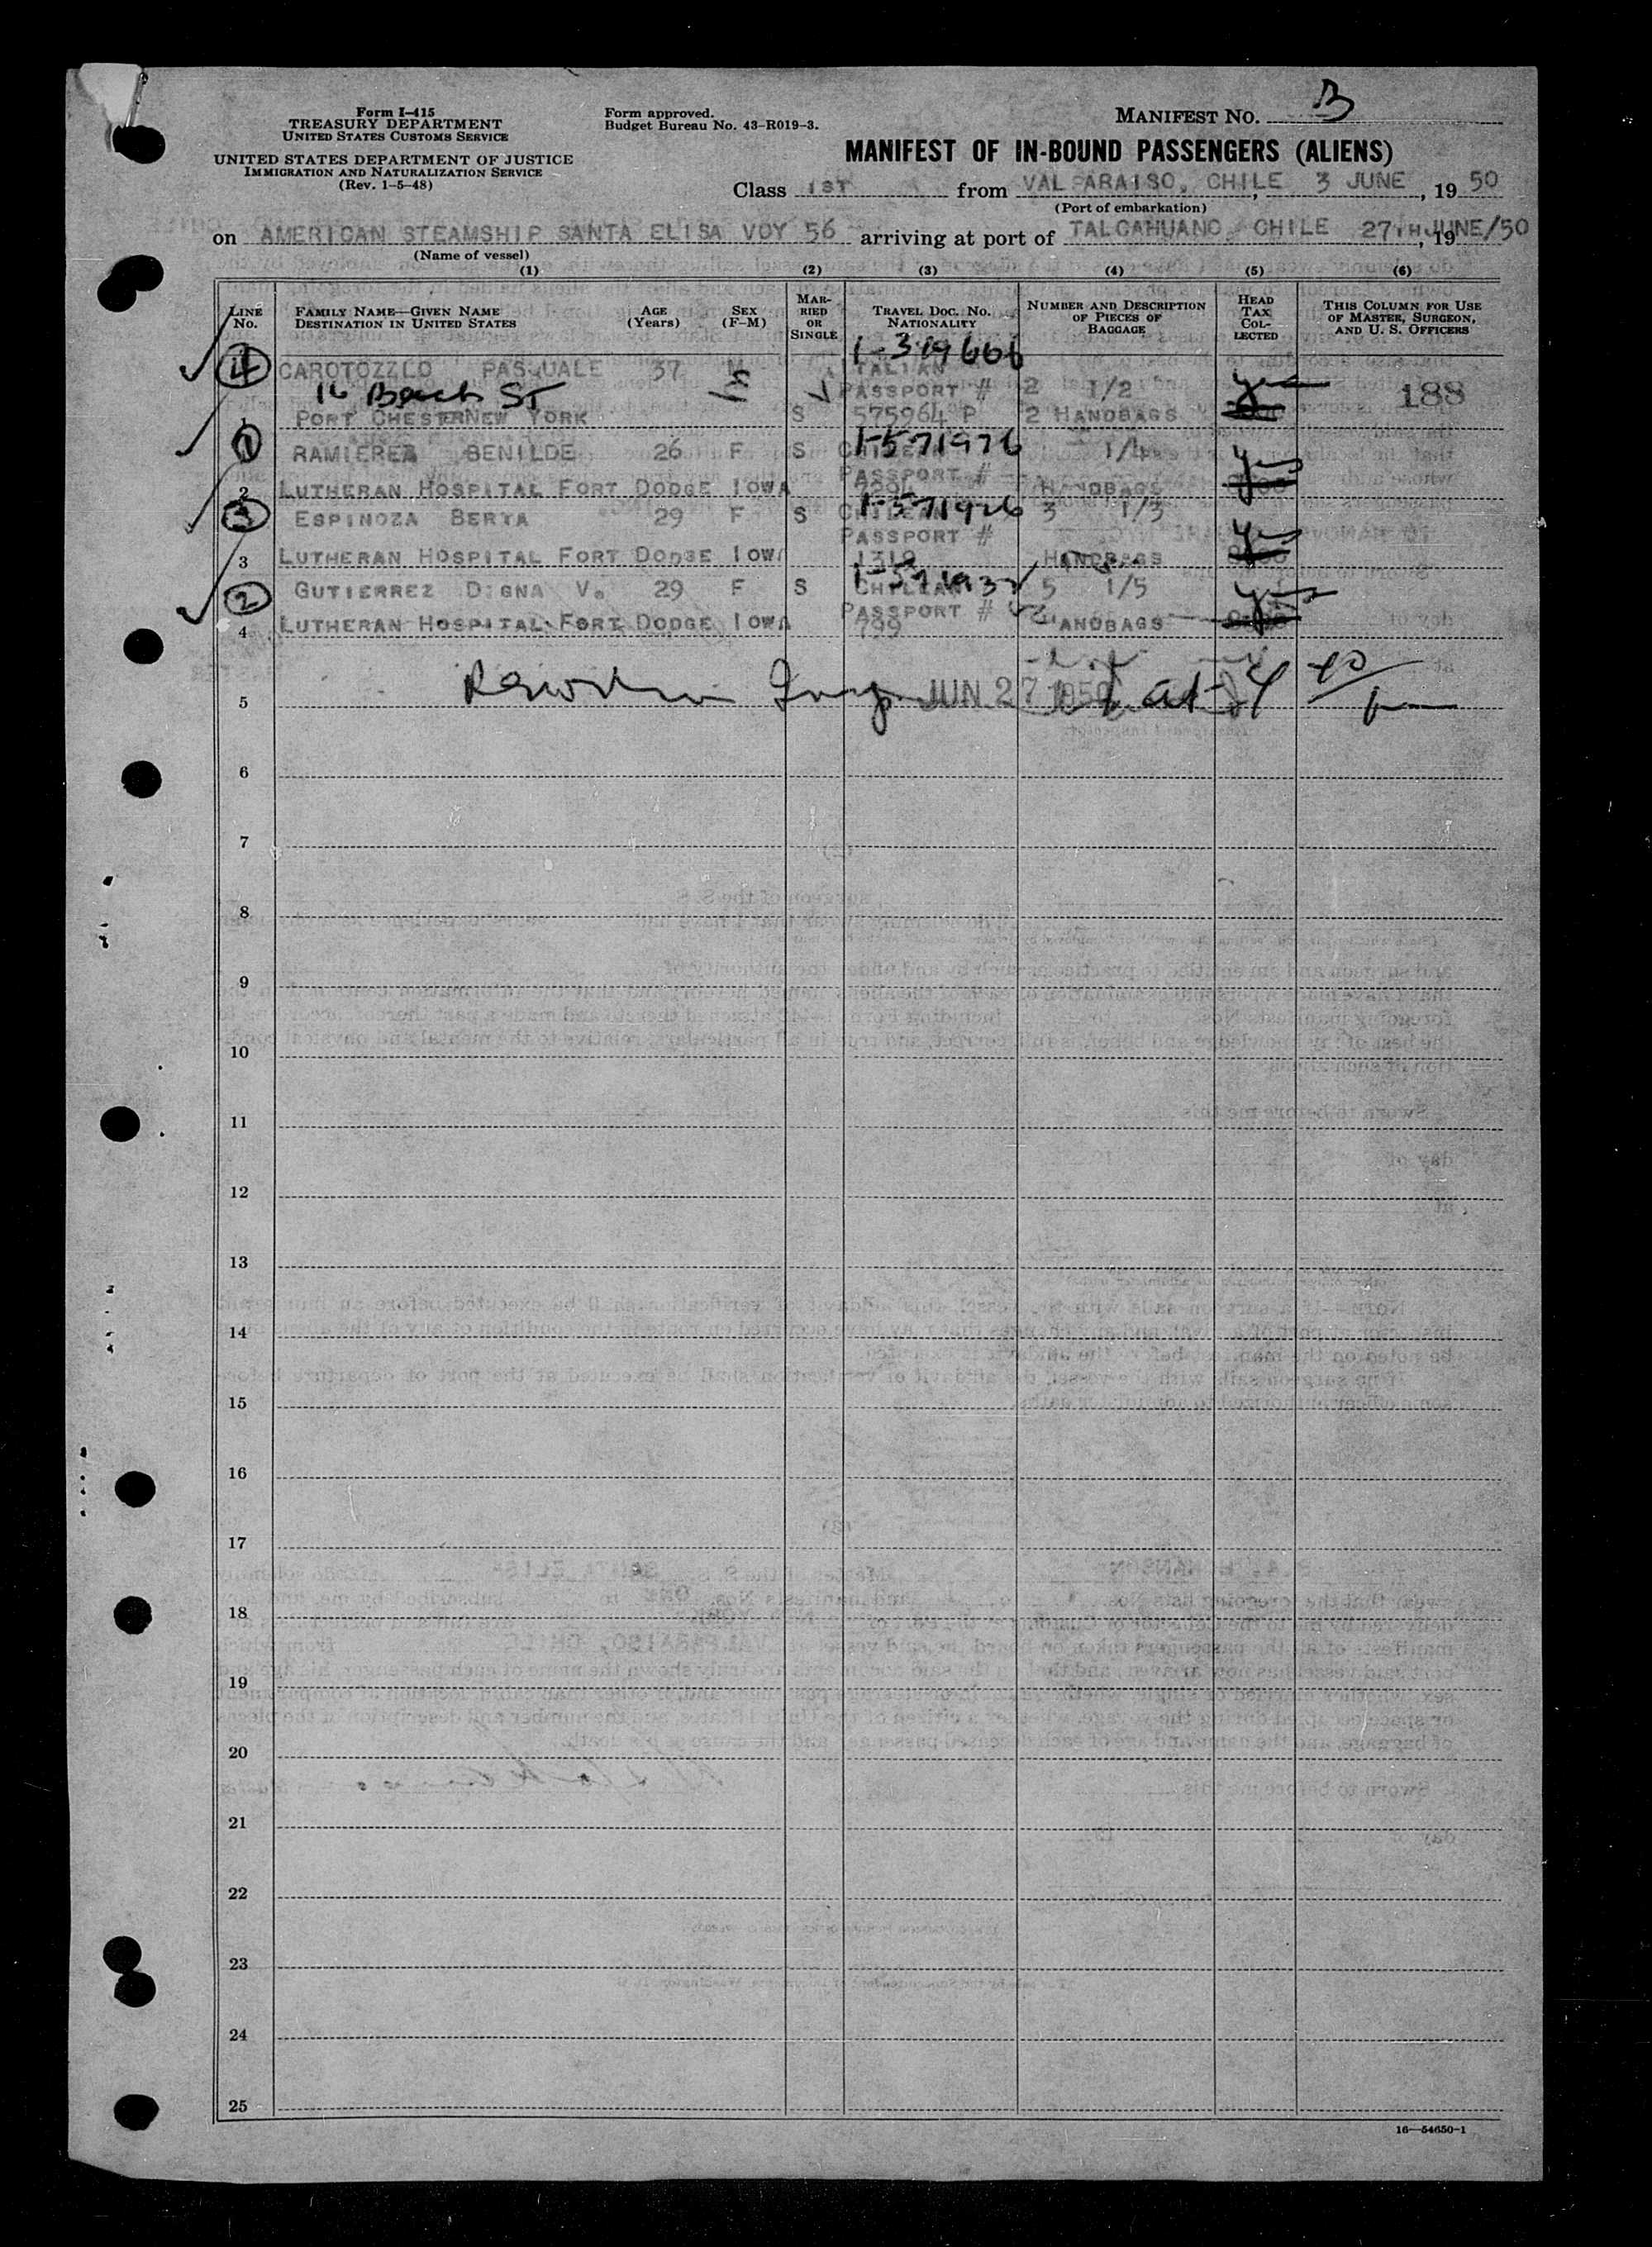 Form I-415
TREASURY DEPARTMENT
UNITED STATES CUSTOMS SERVICE
UNITED STATES DEPARTMENT OF JUSTICE
IMMIGRATION AND NATURALIZATION SERVICE
(Rev. 1-5-48)
Form approved.
Budget Bureau No. 43-R019-3.
MANIFEST NO. 3
MANIFEST OF IN-BOUND PASSENGERS (ALIENS)
Class 1ST from VALPARAISO, CHILE 3 JUNE, 19 50
(Port of embarkation)
on AMERICAN STEAMSHIP SANTA ELISA VOY 56 arriving at port of TALCAHUANO, CHILE 27TH JUNE/50, 19
(Name of vessel)
(1) (2) (3) (4) (5) (6)
LINE NO.
FAMILY NAME—GIVEN NAME
DESTINATION IN UNITED STATES
AGE (Years)
SEX (F-M)
MARRIED OR SINGLE
TRAVEL DOC. NO.
NATIONALITY
NUMBER AND DESCRIPTION OF PIECES OF BAGGAGE
HEAD TAX COLLECTED
THIS COLUMN FOR USE OF MASTER, SURGEON, AND U. S. OFFICERS
1-319666
4 CAROTOZZLO PASQUALE 37 M ITALIAN
16 Beach ST PASSPORT # 2 1/2 yes 188
1 PORT CHESTER NEW YORK S 575964 P 2 HANDBAGS
1 1-571976
RAMIEREZ BENILDE 26 F S CHILEAN 1/4 yes
PASSPORT #
2 LUTHERAN HOSPITAL FORT DODGE IOWA HANDBAGS
3 1-571926
ESPINOZA BERTA 29 F S CHILEAN 3 1/3 yes
PASSPORT #
3 LUTHERAN HOSPITAL FORT DODGE IOWA 1319 HANDBAGS
2 GUTIERREZ DIGNA V. 29 F S CHILEAN 5 1/5 yes
PASSPORT #
4 LUTHERAN HOSPITAL FORT DODGE IOWA 799 HANDBAGS
5 JUN 27 1950 at 4
6
7
8
9
10
11
12
13
14
15
16
17
18
19
20
21
22
23
24
25
16—54650-1